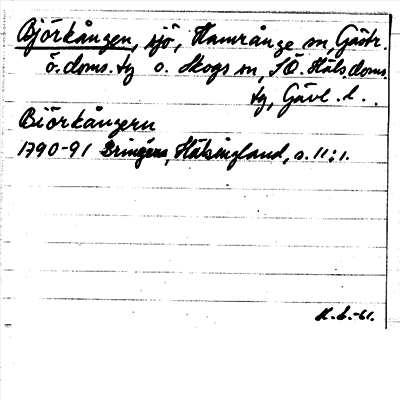 Björkången, sjö, Hamrånge sn, Gästr.
ö. doms. tg o. Skogs sn, SÖ. Häls doms.
tg, Gävl. l.
Biörkångern
1790-91 Bringéus, Hälsingland, s. 11:1.
K.L.-61.